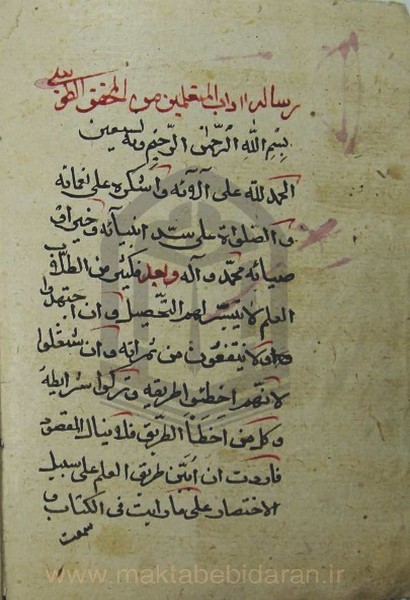 رساله اداب المتعلمین من المحقق الطوسی
بسم الله الرحمن الرحیم وبه نستعین
الحمد لله علی آلائه واشکره علی نعمائه
والصلواة علی سید انبیائه و خیر او
صیائه محمد و آله وبعد فکثیر من الطلاب
العلم لا یتیسر لهم التحصیل وان اجتهدوا
ولا ینتفعون من ثمراته وان شتغلوا
لانهم اخطئوا الطریقه وترکوا شرایطه
وکل من اخطأ الطریق فلا ینال المقصود
فاردت ان ابین طریق العلم علی سبیل
الاختصار علی ما رایت فی الکتاب و
سمعت
www.maktabebidaran.ir